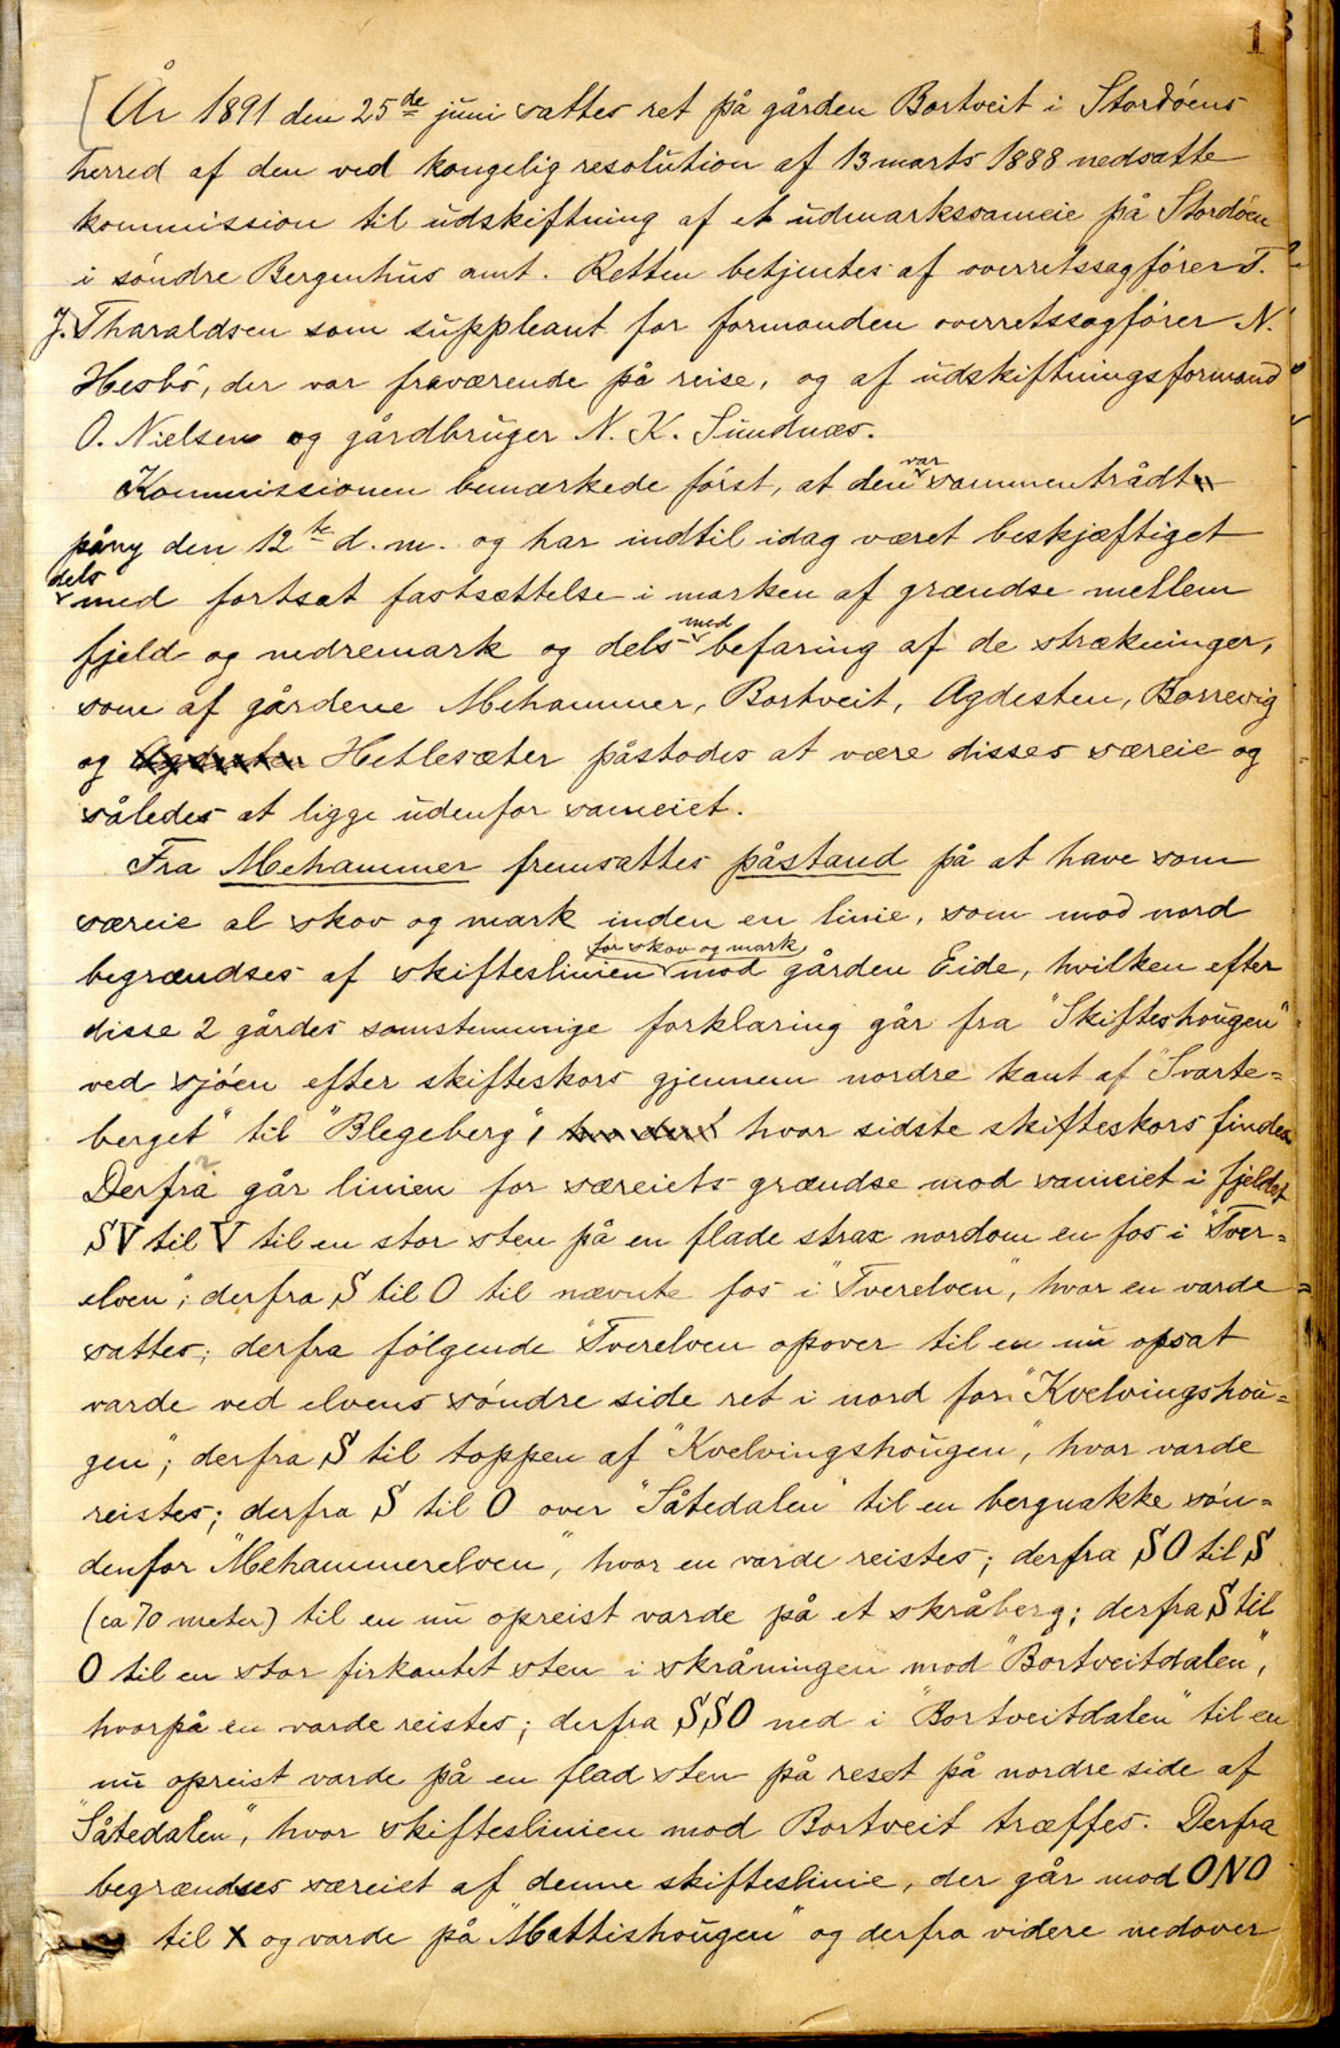 1
År 1891 den 25de juni sattes ret på gården Bortveit i Stordöens
herred af den ved kongelig resolution af 13 marts 1888 nedsatte
kommission til udskiftning af et udmarkssameie på Stordöen
i söndre Bergenhus amt. Retten betjentes af overretssagförer T.
J. Tharaldsen som suppleant for formanden overretssagförer N.
Hesbö, der var fraværende på reise, og af udskiftningsformand
O. Nielsen og gårdbruger N. K. Sundnæs.
Kommissionen bemærkede först, at den var sammentrådt
påny den 12te d. m. og har indtil idag været beskjæftiget
dels med fortsat fastsættelse i marken af grændse mellem
fjeld og nedremark og dels med befaring af de strækninger,
som af gårdene Mehammer, Bortveit, Agdesten, Borrevig
og Agdesten Hetlesæter påstodes at være disses særeie og
således at ligge udenfor sameiet.
Fra Mehammer fremsattes påstand på at have som
særeie al skov og mark inden en linie, som mod nord
begrændses af skifteslinien for skov og mark mod gården Eide, hvilken efter
disse 2 gårdes samstemmige forklaring går fra "Skifteshougen"
ved sjöen efter skifteskors gjennem nordre kant af "Svarte=
berget" til "Blegeberg", hvor sidste skifteskors findes
Derfra går linien for særeiets grændse mod sameiet i fjeldet
SV til V til en stor sten på en flade strax nordom en fos i "Tver=
elven"; derfra S til O til nævnte fos i "Tverelven", hvor en varde
sattes; derfra fölgende "Tverelven opover til en nu opsat
varde ved elvens söndre side ret i nord for "Kvelvingshou=
gen"; derfra S til toppen af "Kvelvingshougen", hvor varde
reistes; derfra S til O over "Såtedalen" til en bergnakke sön=
denfor "Mehammerelven", hvor en varde reistes; derfra SO til S
(ca 70 meter) til en nu opreist varde på et skråberg; derfra S til
O til en stor firkantet sten i skråningen mod "Bortveitdalen",
hvorpå en varde reistes; derfra SSO ned i "Bortveitdalen" til en
nu opreist varde på en flad sten på reset på nordre side af
"Såtedalen", hvor skifteslinien mod Bortveit træffes. Derfra
begrændses særeiet af denne skifteslinie, der går mod ONO
til X og varde på "Mattishougen" og derfra videre nedover